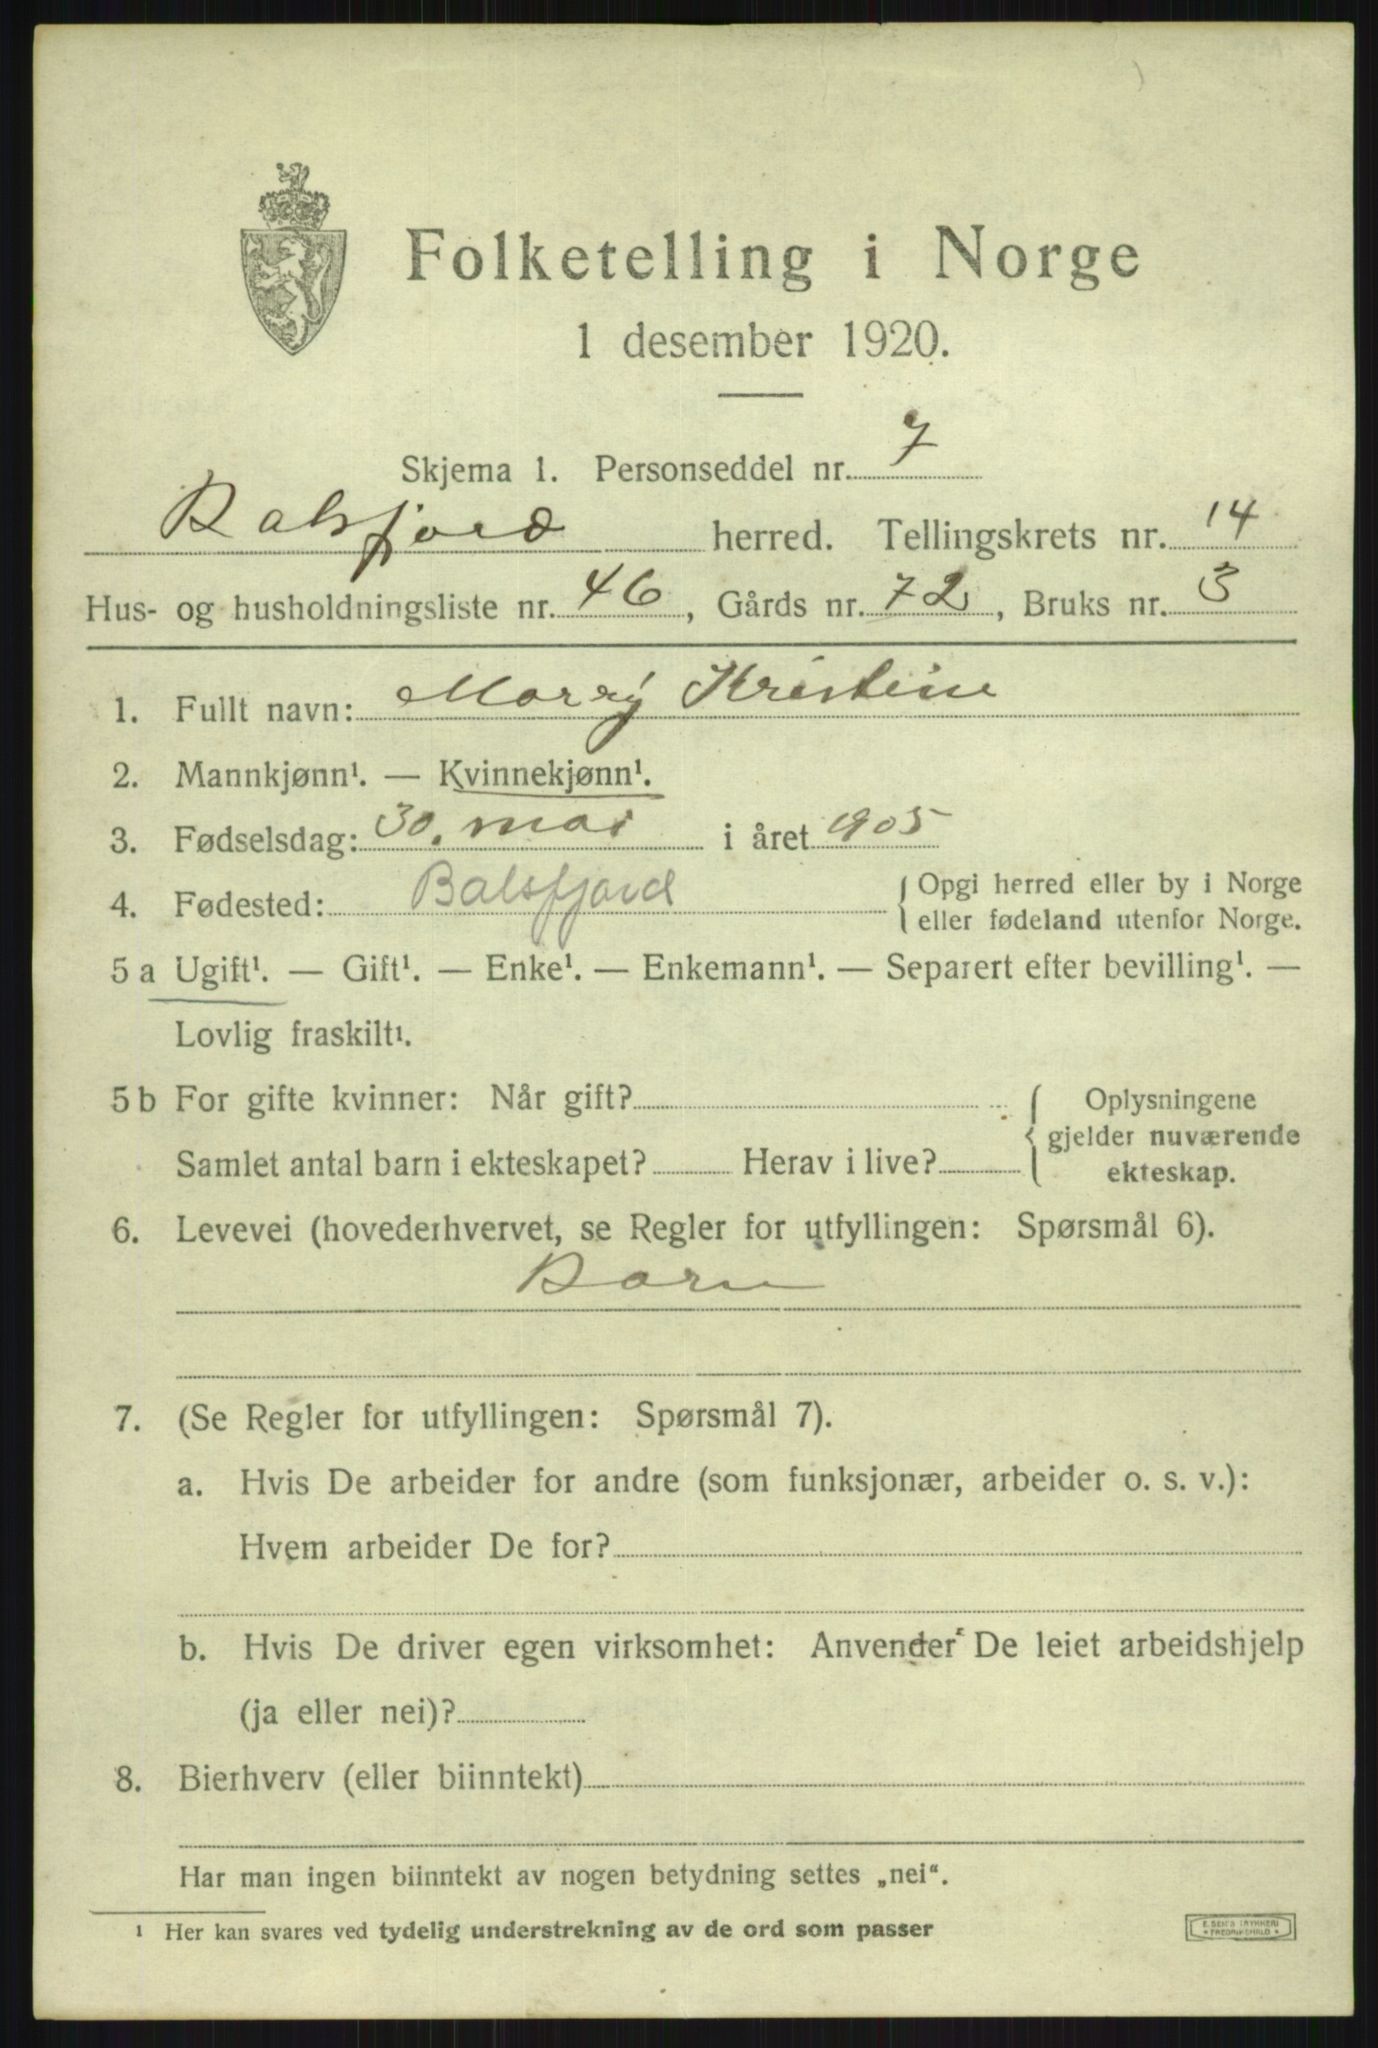 Folketelling i Norge
1 desember 1920.
Skjema 1. Personseddel nr. 7
Balsfjord herred. Tellingskrets nr. 14
Hus- og husholdningsliste nr. 46, Gårds nr. 72, Bruks nr. 3
1. Fullt navn: Marry Kristine
2. Mannkjønn¹. — Kvinnekjønn¹.
3. Fødselsdag: 30. mai i året 1905
4. Fødested: Balsfjord { Opgi herred eller by i Norge
eller fødeland utenfor Norge.
5 a Ugift¹. — Gift¹. — Enke¹. — Enkemann¹. — Separert efter bevilling¹. —
Lovlig fraskilt¹.
5 b For gifte kvinner: Når gift? { Oplysningene
gjelder nuværende
Samlet antal barn i ekteskapet? Herav i live? ekteskap.
6. Levevei (hovederhvervet, se Regler for utfyllingen: Spørsmål 6).
Barn
7. (Se Regler for utfyllingen: Spørsmål 7).
a. Hvis De arbeider for andre (som funksjonær, arbeider o. s. v.):
Hvem arbeider De for?
b. Hvis De driver egen virksomhet: Anvender De leiet arbeidshjelp
(ja eller nei)?
8. Bierhverv (eller biinntekt)
Har man ingen biinntekt av nogen betydning settes „nei“.
¹ Her kan svares ved tydelig understrekning av de ord som passer